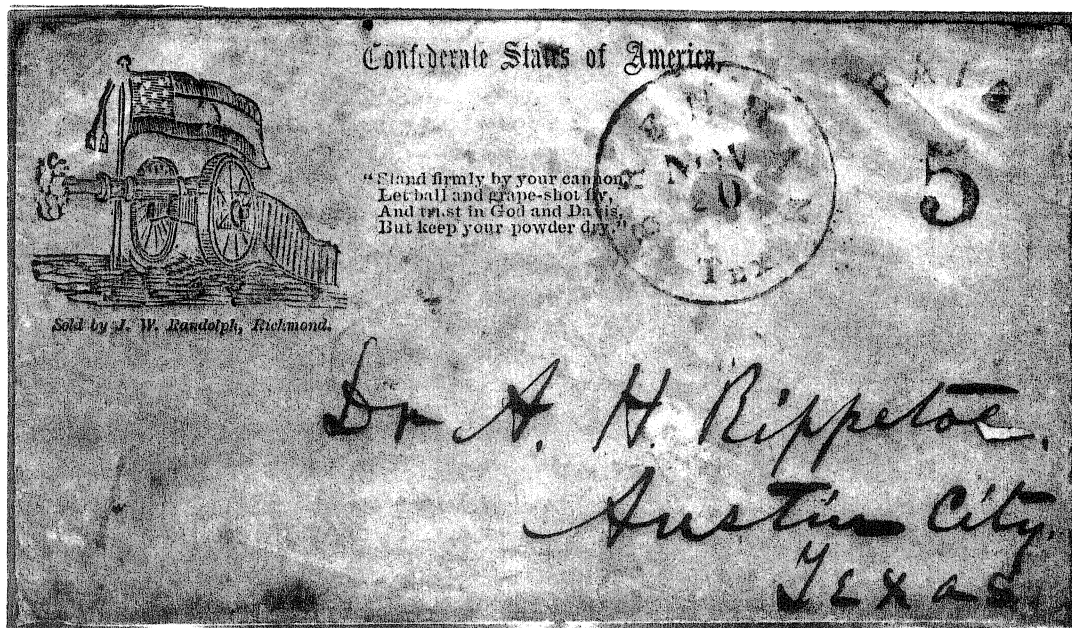 Confederate States of America,
PAID
5
NOV
20
TEX
"Stand firmly by your cannon,
Let ball and grape-shot fly,
And trust in God and Davis,
But keep your powder dry."
Sold by J. W. Randolph, Richmond.
Dr A. H. Rippetoe.
Austin City.
Texas